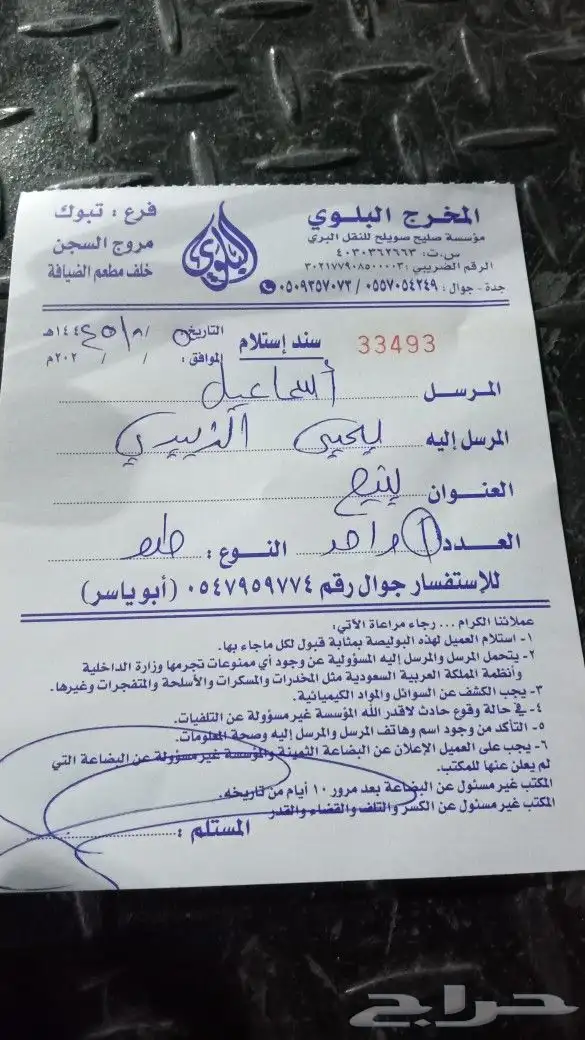 المخرج البلوي
مؤسسة صليح صويلح للنقل البري
س.ت: ٤٠٣٠٣٦٢٦٦٣
الرقم الضريبي: ٣٠٢١٧٧٩٠٨٥٠٠٠٠٣
جدة - جوال: ٠٥٥٧٠٥٤٢٤٩ / ٠٥٠٩٣٥٧٠٧٣
البلوي
فرع: تبوك
مروج السجن
خلف مطعم الضيافة
33493
سند إستلام
التاريخ
١٤٤ هـ
الموافق: / / ٢٠٢ م
المرسل أسماعيل
المرسل إليه يحيى الزبيدي
العنوان ينبع
العدد ١ واحد النوع:
للإستفسار جوال رقم ٠٥٤٧٩٥٩٧٧٤ (أبو ياسر)
عملائنا الكرام ... رجاء مراعاة الآتي:
١- استلام العميل لهذه البوليصة بمثابة قبول لكل ماجاء بها.
٢- يتحمل المرسل والمرسل إليه المسؤولية عن وجود أي ممنوعات تجرمها وزارة الداخلية
وأنظمة المملكة العربية السعودية مثل المخدرات والمسكرات والأسلحة والمتفجرات وغيرها.
٣- يجب الكشف عن السوائل والمواد الكيميائية.
٤- في حالة وقوع حادث لاقدر الله المؤسسة غير مسؤولة عن التلفيات.
٥- التأكد من وجود اسم وهاتف المرسل والمرسل إليه وصحة المعلومات.
٦- يجب على العميل الإعلان عن البضاعة الثمينة والمؤسسة غير مسؤولة عن البضاعة التي
لم يعلن عنها للمكتب.
المكتب غير مسئول عن البضاعة بعد مرور ١٠ أيام من تاريخه.
المكتب غير مسئول عن الكسر والتلف والقضاء والقدر
المستلم:
حراج